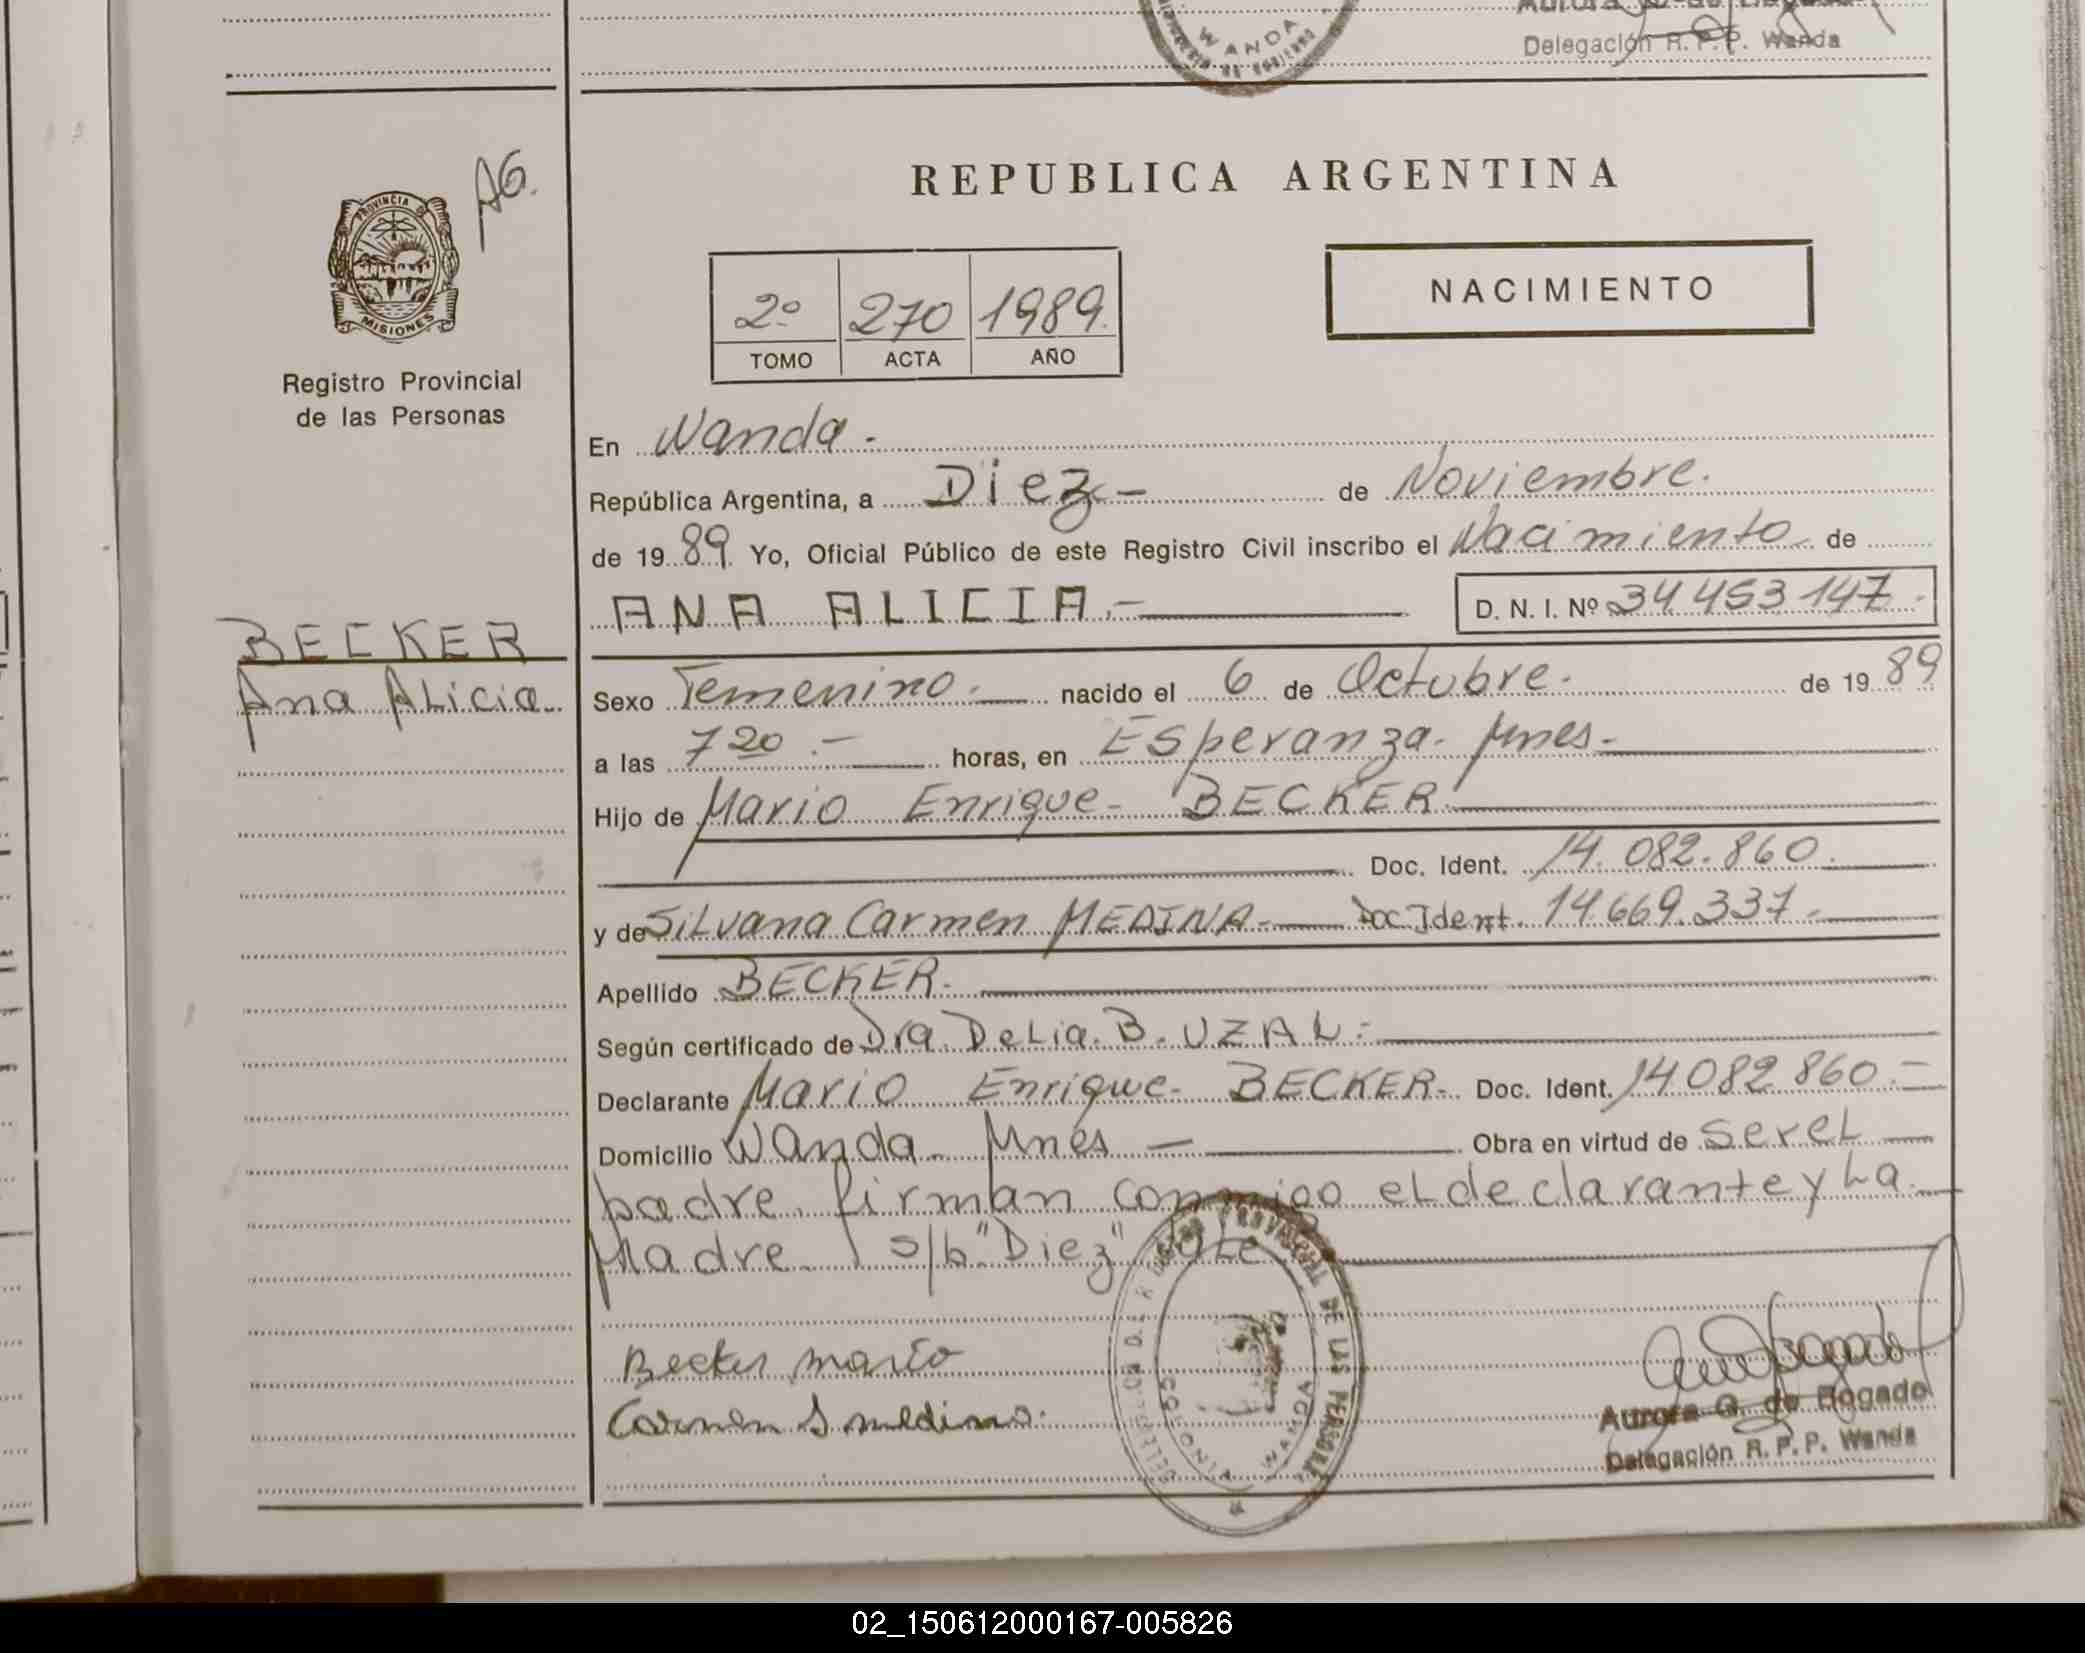 WANDA
Delegación R. P. P. Wanda
AG.
PROVINCIA DE
MISIONES
Registro Provincial
de las Personas
REPUBLICA ARGENTINA
2º 270 1989.
TOMO ACTA AÑO
NACIMIENTO
En Wanda.-
República Argentina, a Diez.- de Noviembre.
de 1989. Yo, Oficial Público de este Registro Civil inscribo el Nacimiento de
ANA ALICIA.- D. N. I. Nº 34 453 147.
BECKER
Ana ALicia.
Sexo Femenino. nacido el 6 de Octubre. de 1989
a las 720.- horas, en Esperanza. Mnes.-
Hijo de Mario Enrique- BECKER
Doc. Ident. 14.082.860.
y de SiLvana Carmen MEDINA- Doc Ident. 14.669.337.-
Apellido BECKER.
Según certificado de Dra. DeLia. B. UZAL.-
Declarante Mario Enrique- BECKER- Doc. Ident. 14082 860.-
Domicilio Wanda. Mnes - Obra en virtud de ser eL
padre, firman conmigo eL declarante y La
Madre. s/b "Diez" vaLe.
Becker mario
Carmen S medina.
REGISTRO PROVINCIAL DE LAS PERSONAS
WANDA
Aurora G. de Bogado
Delegación R. P. P. Wanda
02_150612000167-005826